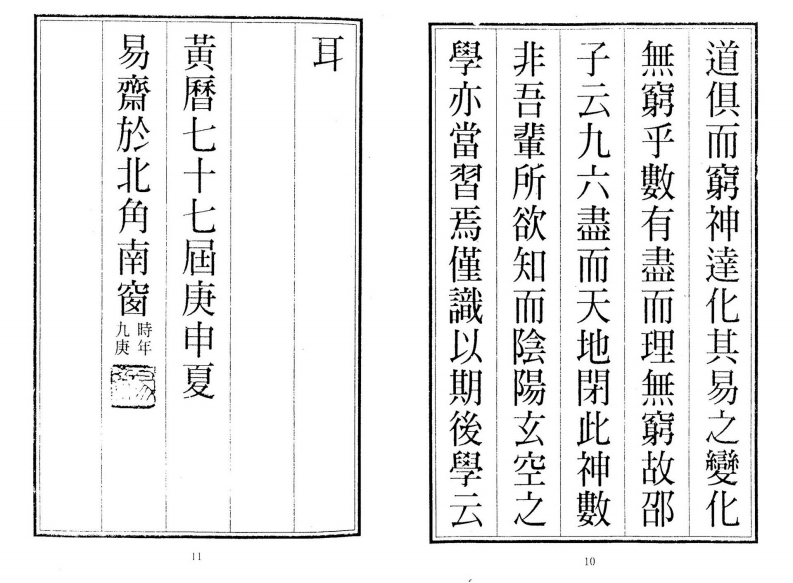 道俱而窮神達化其易之變化
無窮乎數有盡而理無窮故邵
子云九六盡而天地閉此神數
非吾輩所欲知而陰陽玄空之
學亦當習焉僅識以期後學云
10
耳
黃曆七十七屆庚申夏
易齋於北角南窗
時年
九庚
11